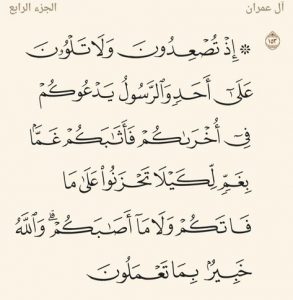 آل عمران الجزء الرابع
١٥٣
۞ إِذْ تُصْعِدُونَ وَلَا تَلْوُۥنَ
عَلَىٰٓ أَحَدٍ وَٱلرَّسُولُ يَدْعُوكُمْ
فِىٓ أُخْرَىٰكُمْ فَأَثَٰبَكُمْ غَمًّۢا
بِغَمٍّ لِّكَيْلَا تَحْزَنُوا۟ عَلَىٰ مَا
فَاتَكُمْ وَلَا مَآ أَصَٰبَكُمْ ۗ وَٱللَّهُ
خَبِيرٌۢ بِمَا تَعْمَلُونَ